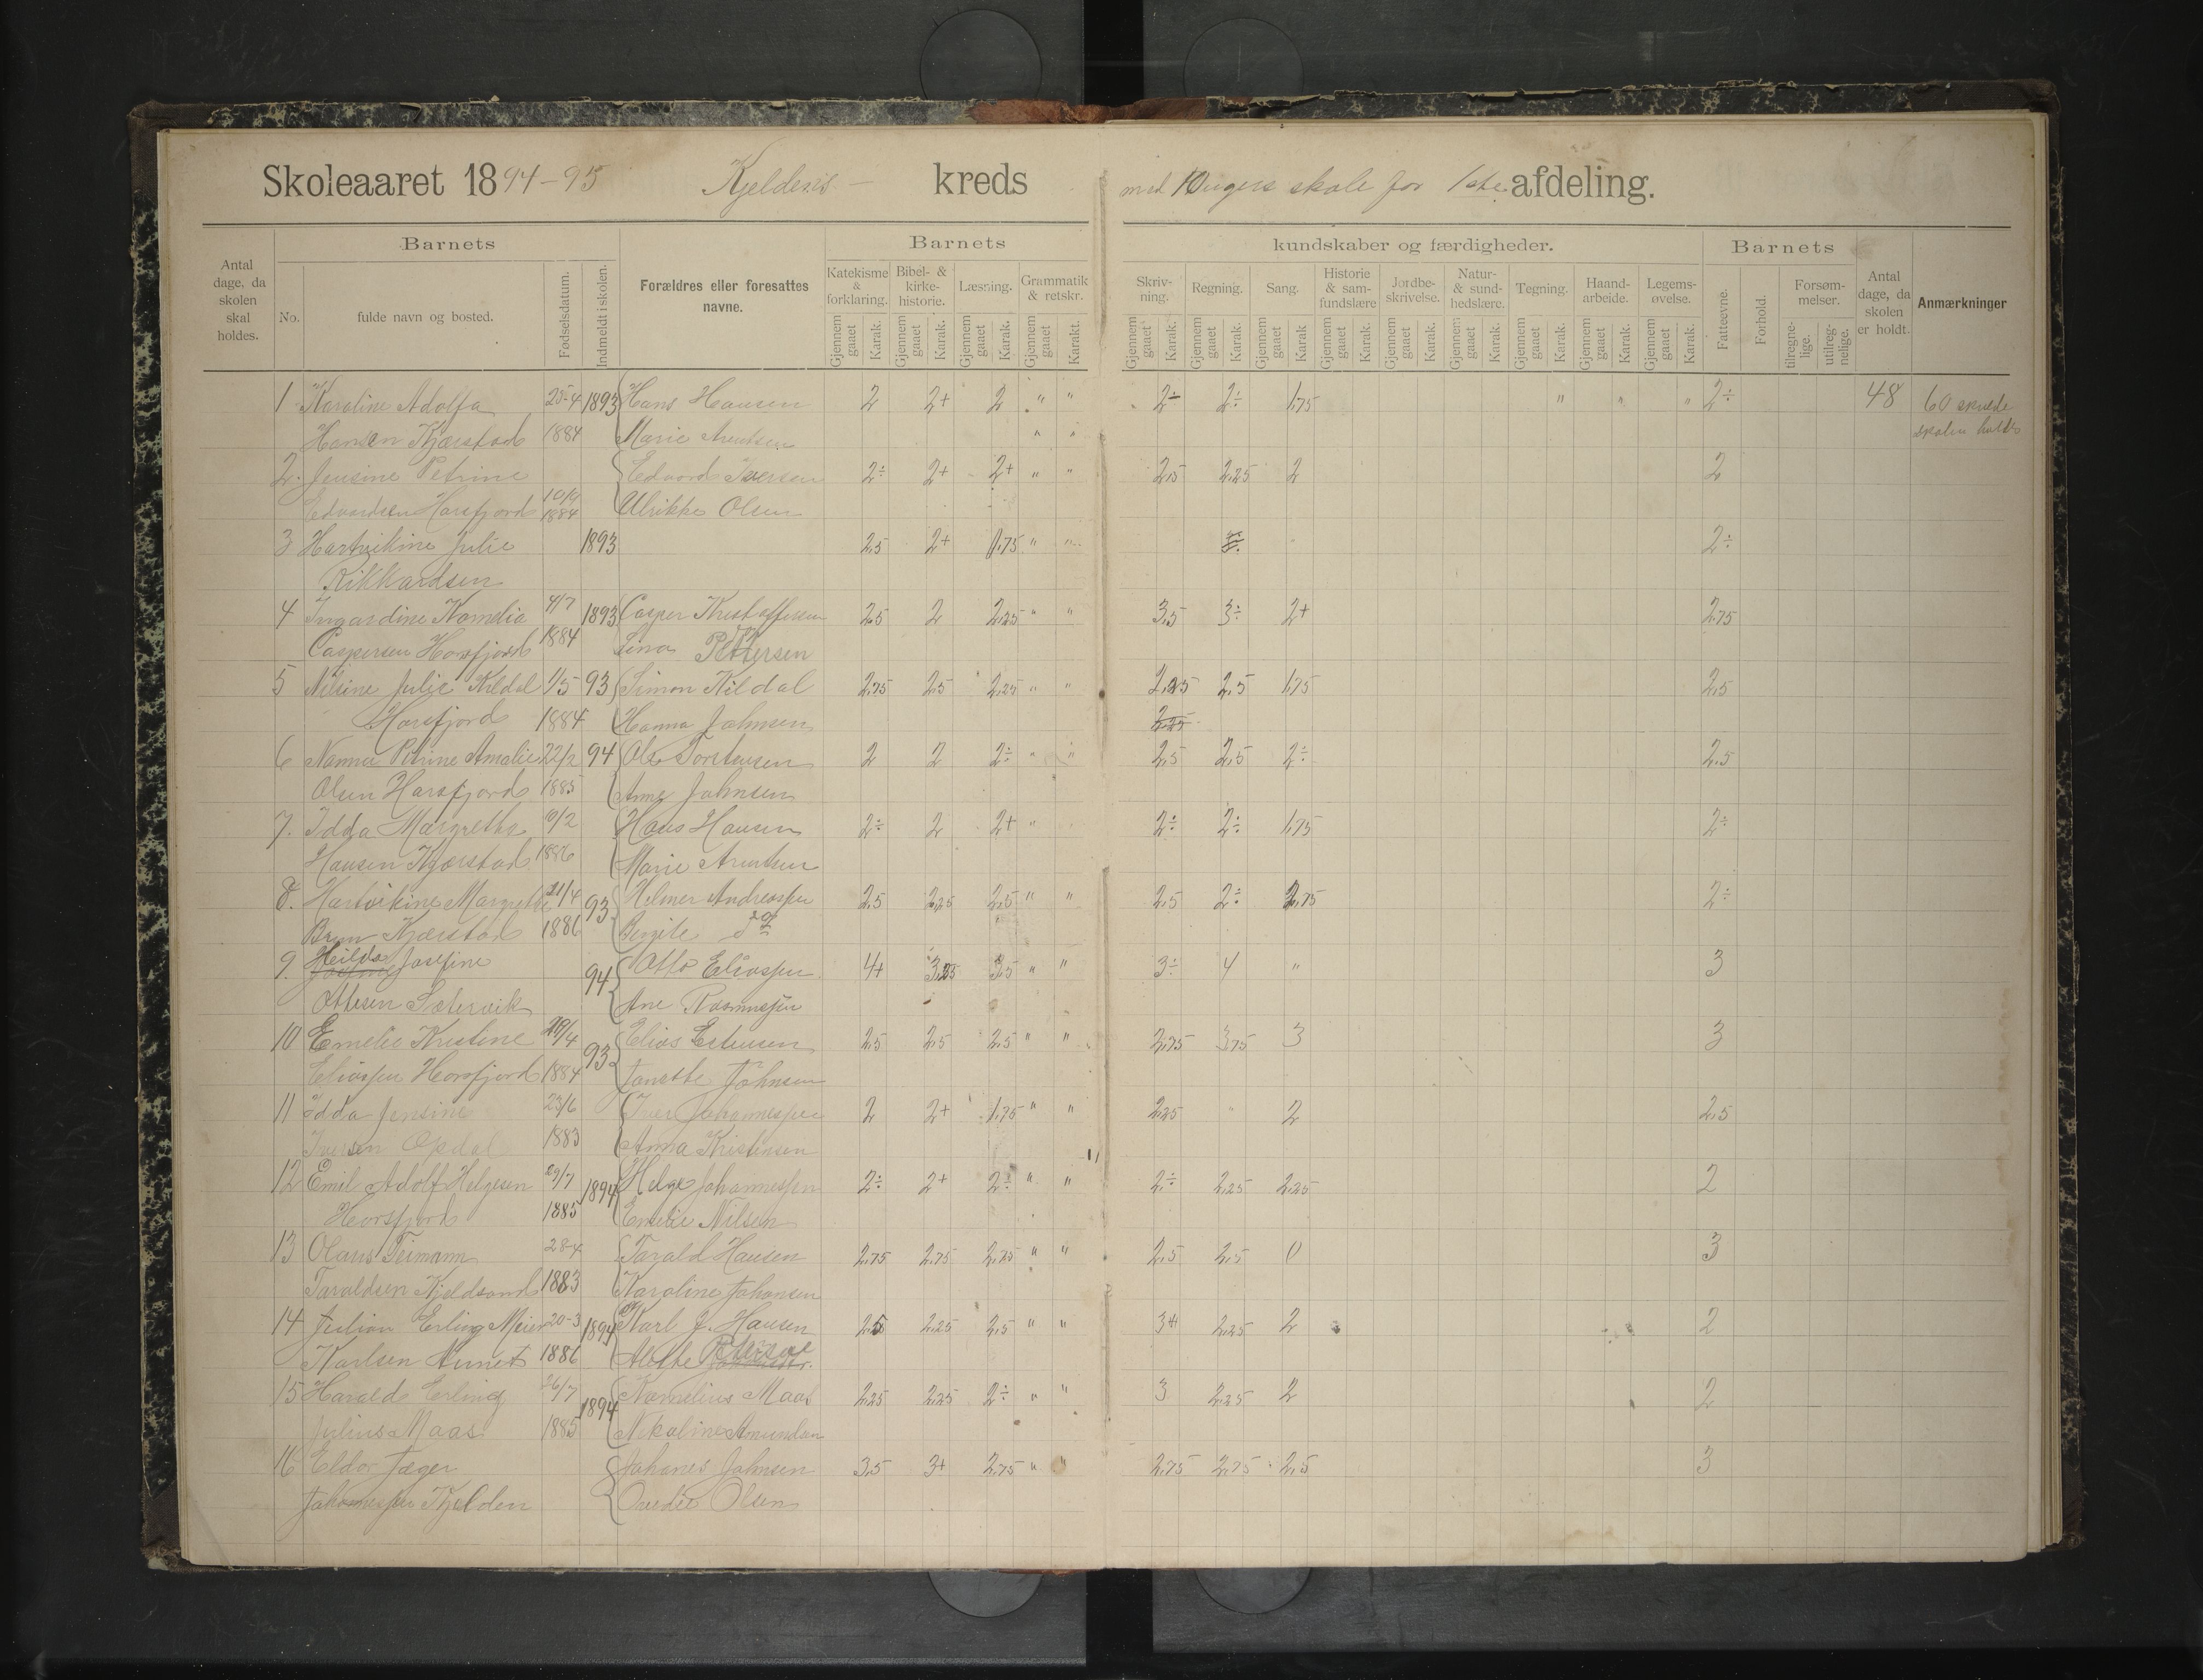 Skoleaaret 1894-95 Kjeldens kreds med 10 ugers skole for 1ste afdeling.
Antal dage, da skolen skal holdes. Barnets Forældres eller foresattes navne. Barnets kundskaber og færdigheder. Barnets Antal dage, da skolen er holdt. Anmærkninger
No. fulde navn og bosted. Fødselsdatum. Indmeldt i skolen. Katekisme & forklaring. Bibel- & kirke-historie. Læsning. Grammatik & retskr. Skriv-ning. Regning. Sang. Historie & sam-fundslære Jordbe-skrivelse. Natur- & sund-hedslære. Tegning. Haand-arbeide. Legems-øvelse. Fatteevne. Forhold. Forsøm-melser.
Gjennem gaaet Karak. Gjennem gaaet Karak. Gjennem gaaet Karak. Gjennem gaaet Karakt. Gjennem gaaet Karak. Gjennem gaaet Karak. Gjennem gaaet Karak Gjennem gaaet Karak. Gjennem gaaet Karak. Gjennem gaaet Karak. Gjennem gaaet Karak. Gjennem gaaet Karak. Gjennem gaaet Karak. tilregne-lige. utilreg-nelige.
1 Karoline Adolfa 25-4 1893 Hans Hansen 2 2+ 2 " " 2÷ 2÷ 1,75 " " " 2÷ 48 60 skulde
Hansen Kjærstad 1884 Marie Arentsen " " skolen holdes
2. Jensine Petrine Edvard Iversen 2÷ 2+ 2+ " " 2,5 2,25 2 2
Edvardsen Horsfjord 10/9 1884 Ulrikke Olsen
3 Hartvikine Julie 1893 2,5 2+ 1,75 " " 2÷
Rikkardsen
4 Ingardine Kornelia 4/7 1893 Casper Kristoffersen 2,5 2 2,25 " " 3,5 3÷ 2+ 2,75
Caspersen Horsfjord 1884 Lina Pettersen
5 Nilsine Julie Kildal 1/5 93 Simon Kildal 2,75 2,5 2,25 " " 2,25 2,5 1,75 2,5
Horsfjord 1884 Hanna Johnsen 2,25
6 Nanna Petrine Amalie 22/2 94 Ole Torstensen 2 2 2÷ " " 2,5 2,5 2÷ 2,5
Olsen Horsfjord 1885 Anne Johnsen
7. Idda Margrethe 10/2 Hans Hansen 2÷ 2 2+ " 2÷ 2÷ 1,75 2÷
Hansen Kjærstad 1886 Marie Arentsen
8. Hartvikine Margrethe 21/4 93 Helmer Andreassen 2,5 2,25 2,5 " " 2,5 2÷ 2,75 2÷
Brun Kjærstad 1886 Bergite do
9. Heilda Josefine 94 Otto Eliassen 4+ 3,25 3,5 " " 3÷ 4 " 3
Ottesen Sætervik Ane Rasmussen
10 Emelie Kristine /4 93 Elias Estensen 2,5 2,5 2,5 " " 2,75 3,75 3 3
Eliassen Horsfjord 1884 Jansthe Johnsen
11 Idda Jensine 23/6 Iver Johannessen 2 2+ 1,75 " " 2,25 " 2 2,5
Iversen Opdal 1883 Anna Kristensen
12 Emil Adolf Helgesen 29/7 1894 Helge Johannessen 2÷ 2+ 2÷ " " 2÷ 2,25 2,25 2
Horsfjord 1885 Emelie Nilsen
13 Olaus Teimann 28-4 Tarald Hansen 2,75 2,75 2,75 " " 2,5 2,5 0 3
Taraldsen Kjeldsand 1883 Karoline Johansen
14 Julian Erling Meier 20-3 1894 Karl J. Hansen 2,5 2,25 2,5 " " 3+ 2,25 2 2
Karlsen Aunet 1886 Alethe Petersen
15 Harald Erling 26/7 1894 Kornelius Maas 2,25 2,25 2÷ " " 3 2,25 2 2
Julius Maas 1885 Nikoline Amundsen
16 Eldor Jæger Johanes Johnsen 3,5 3+ 2,75 " " 2,75 2,75 2,5 3
Johannessen Kjelden Ovedie Olsen